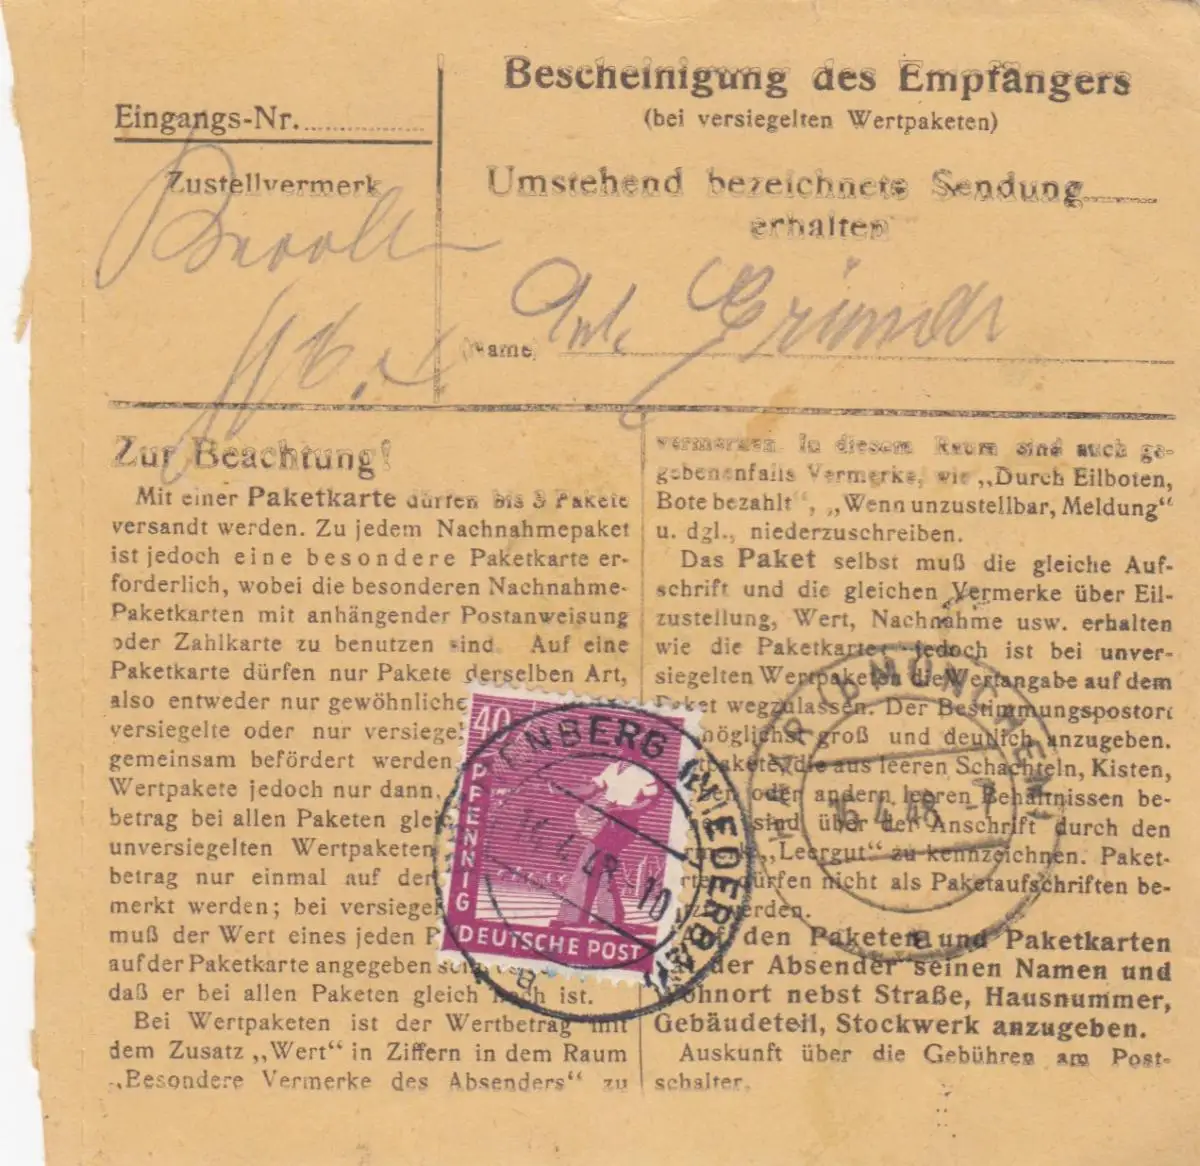 Eingangs-Nr.
Zustellvermerk
Bescheinigung des Empfängers
(bei versiegelten Wertpaketen)
Umstehend bezeichnete Sendung
erhalten
(Name)
Zur Beachtung!
Mit einer Paketkarte dürfen bis 3 Pakete
versandt werden. Zu jedem Nachnahmepaket
ist jedoch eine besondere Paketkarte er-
forderlich, wobei die besonderen Nachnahme-
Paketkarten mit anhängender Postanweisung
oder Zahlkarte zu benutzen sind. Auf eine
Paketkarte dürfen nur Pakete derselben Art,
also entweder nur gewöhnliche
versiegelte oder nur versiegel
gemeinsam befördert werden
Wertpakete jedoch nur dann,
betrag bei allen Paketen glei
unversiegelten Wertpaketen
betrag nur einmal auf der
merkt werden; bei versiegel
muß der Wert eines jeden P
auf der Paketkarte angegeben sein
daß er bei allen Paketen gleich hoch ist.
Bei Wertpaketen ist der Wertbetrag mit
dem Zusatz „Wert“ in Ziffern in dem Raum
„Besondere Vermerke des Absenders“ zu
vermerken. In diesem Raum sind auch ge-
gebenenfalls Vermerke, wie „Durch Eilboten,
Bote bezahlt“, „Wenn unzustellbar, Meldung“
u. dgl., niederzuschreiben.
Das Paket selbst muß die gleiche Auf-
schrift und die gleichen Vermerke über Eil-
zustellung, Wert, Nachnahme usw. erhalten
wie die Paketkarte, jedoch ist bei unver-
siegelten Wertpaketen die Wertangabe auf dem
Paket wegzulassen. Der Bestimmungspostort
möglichst groß und deutlich anzugeben.
tpakete, die aus leeren Schachteln, Kisten,
oder andern leeren Behältnissen be-
sind über der Anschrift durch den
„Leergut“ zu kennzeichnen. Paket-
rten dürfen nicht als Paketaufschriften be-
tzt werden.
Auf den Paketen und Paketkarten
hat der Absender seinen Namen und
Wohnort nebst Straße, Hausnummer,
Gebäudeteil, Stockwerk anzugeben.
Auskunft über die Gebühren am Post-
schalter.
40
PFENNIG
DEUTSCHE POST
ENBERG (NIEDERBAY
14.4.48.-10
B
HAAR (b MÜNCHEN)
15.4.48.-7
a